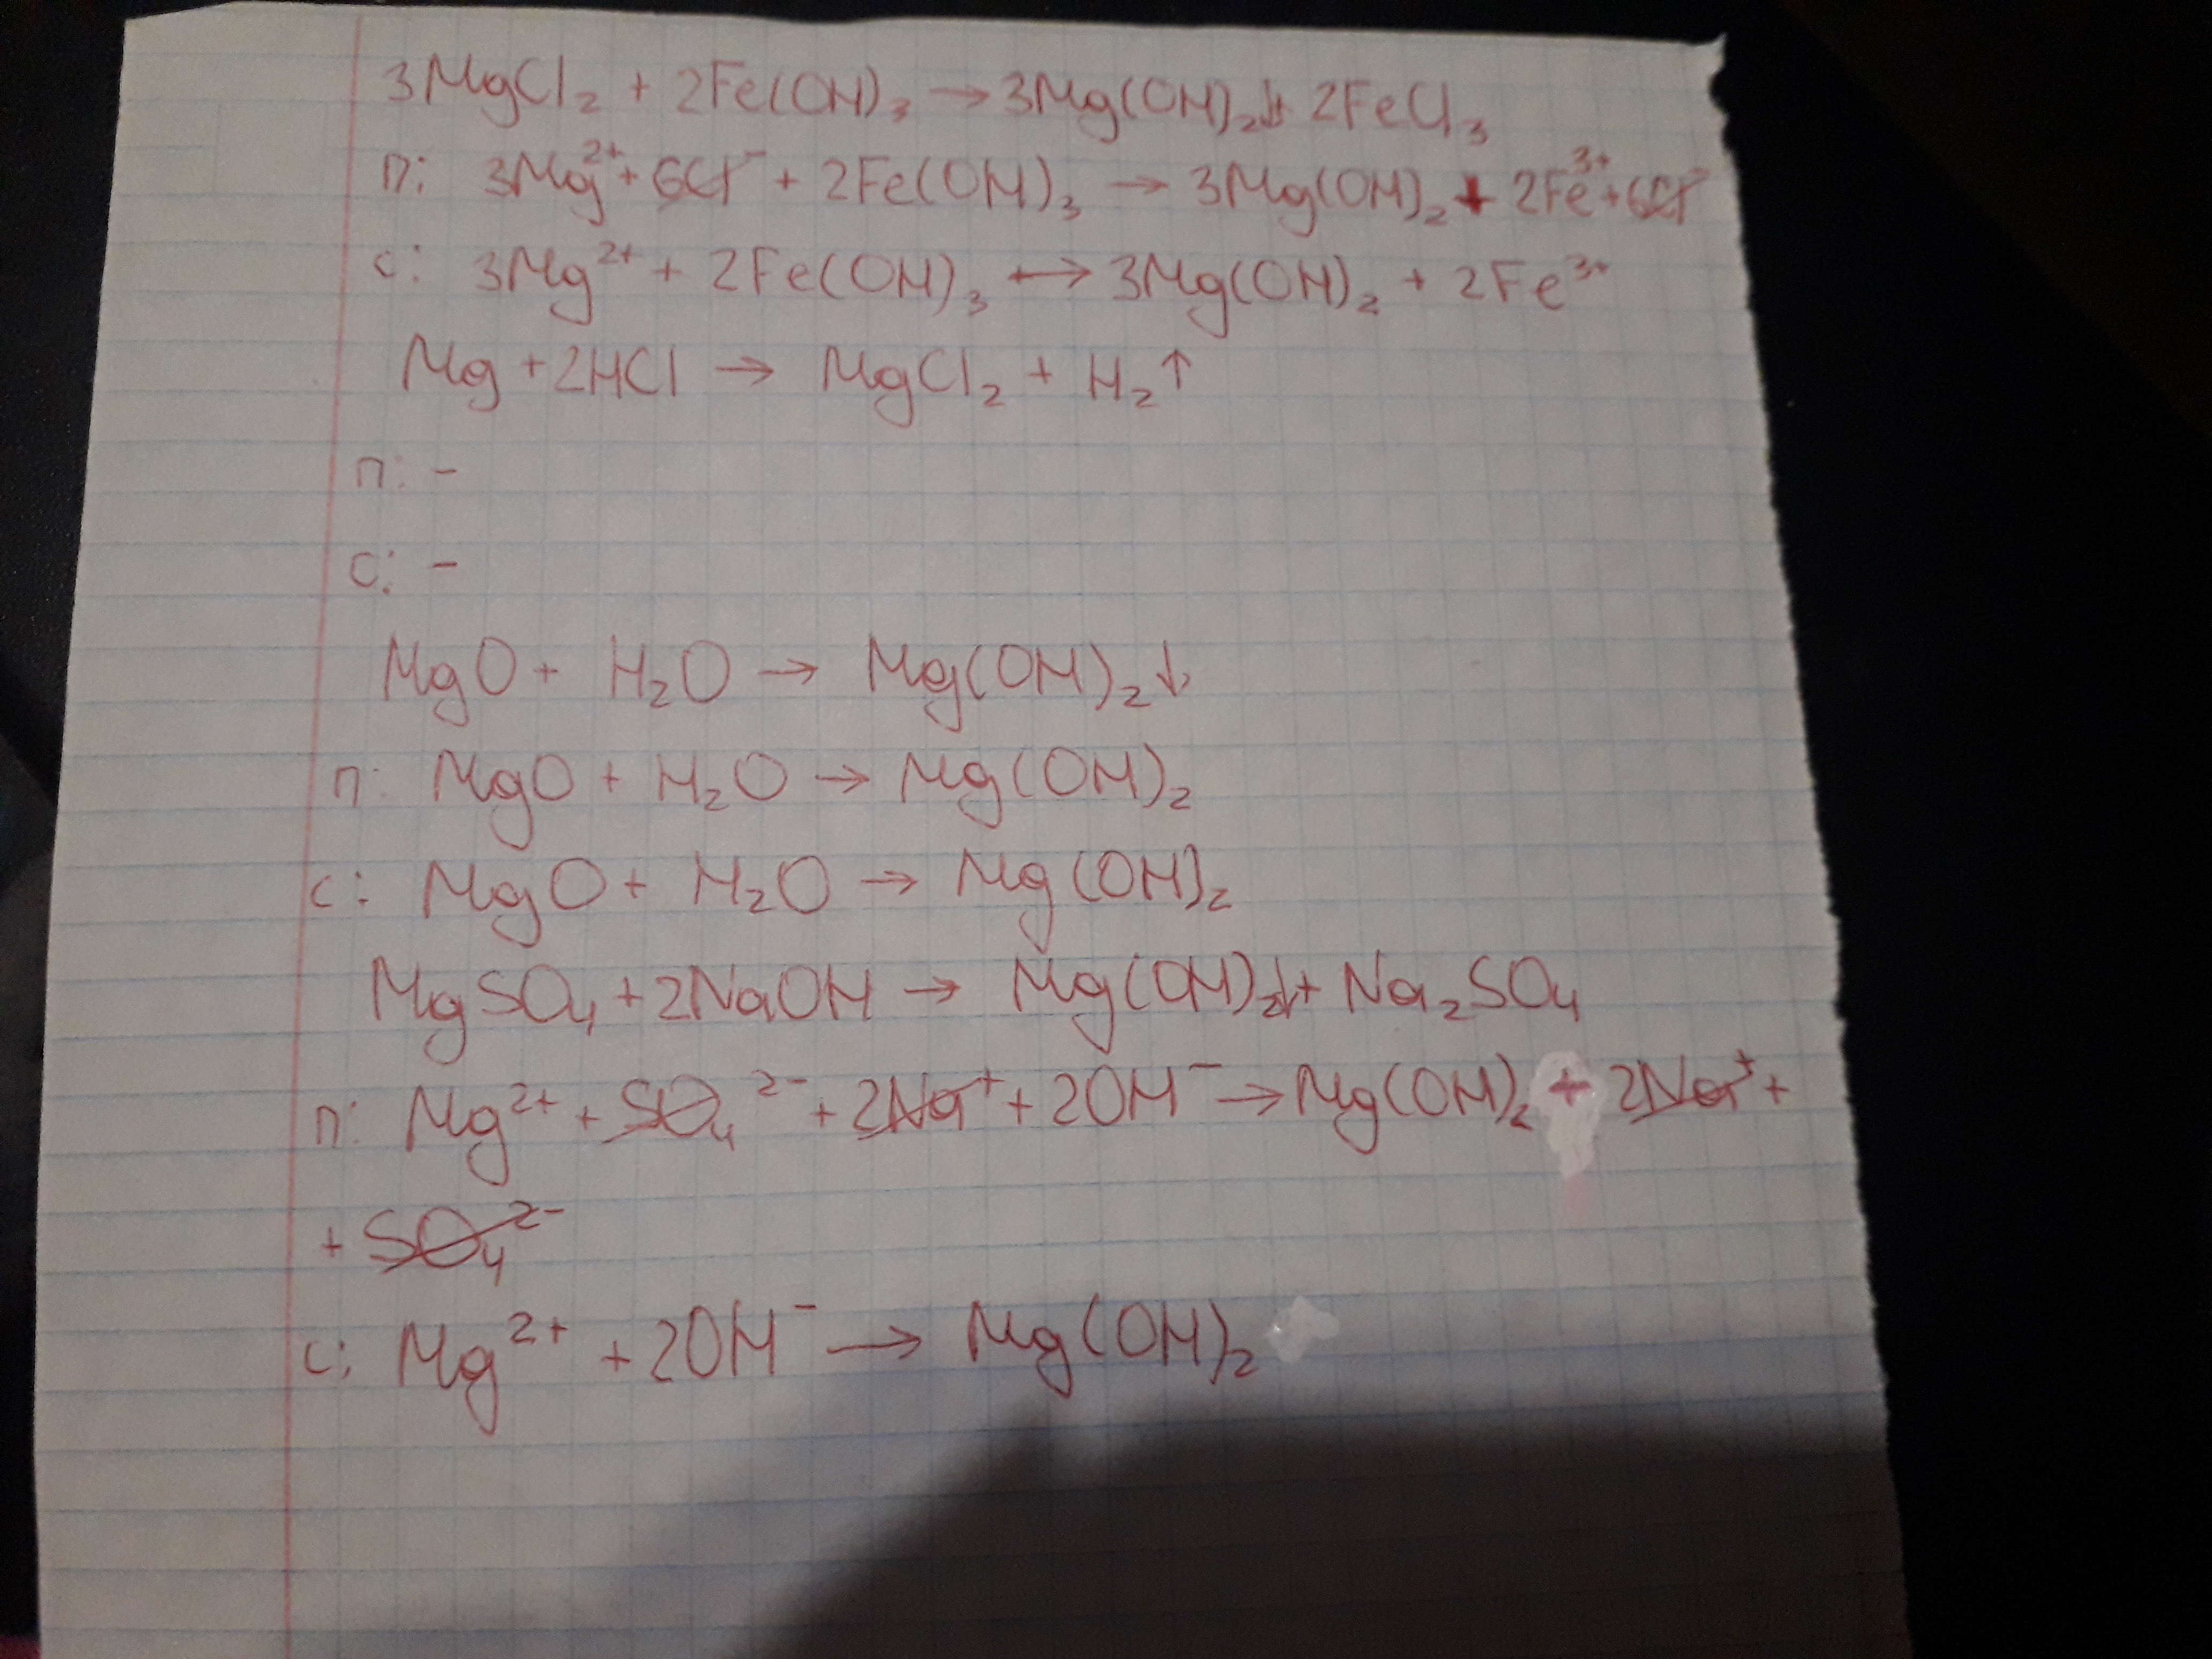 3MgCl₂ + 2Fe(OH)₃ → 3Mg(OH)₂↓ + 2FeCl₃
П: 3Mg²⁺ + 6Cl⁻ + 2Fe(OH)₃ → 3Mg(OH)₂ + 2Fe³⁺ + 6Cl⁻
С: 3Mg²⁺ + 2Fe(OH)₃ → 3Mg(OH)₂ + 2Fe³⁺
Mg + 2HCl → MgCl₂ + H₂↑
П: -
С: -
MgO + H₂O → Mg(OH)₂↓
П: MgO + H₂O → Mg(OH)₂
С: MgO + H₂O → Mg(OH)₂
MgSO₄ + 2NaOH → Mg(OH)₂↓ + Na₂SO₄
П: Mg²⁺ + SO₄²⁻ + 2Na⁺ + 2OH⁻ → Mg(OH)₂ + 2Na⁺ +
+ SO₄²⁻
С: Mg²⁺ + 2OH⁻ → Mg(OH)₂